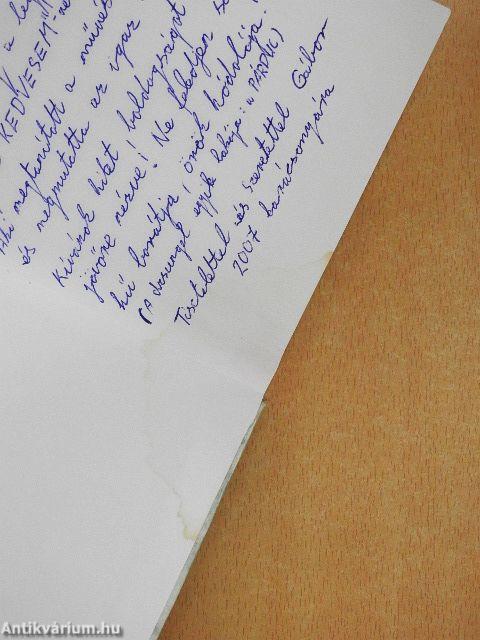 a
KEDVESEM"-ne
Aki megtanított a művé
és megmutatta az igaz
Kívánok hitet, boldogságot
jövőre nézve! Ne feledjen
hű barátja, örök hódolója!
(A dzsungel egyik lakója: a PÁRDUC)
Tisztelettel és szeretettel Gábor
2007 karácsonyára
Antikvárium.hu